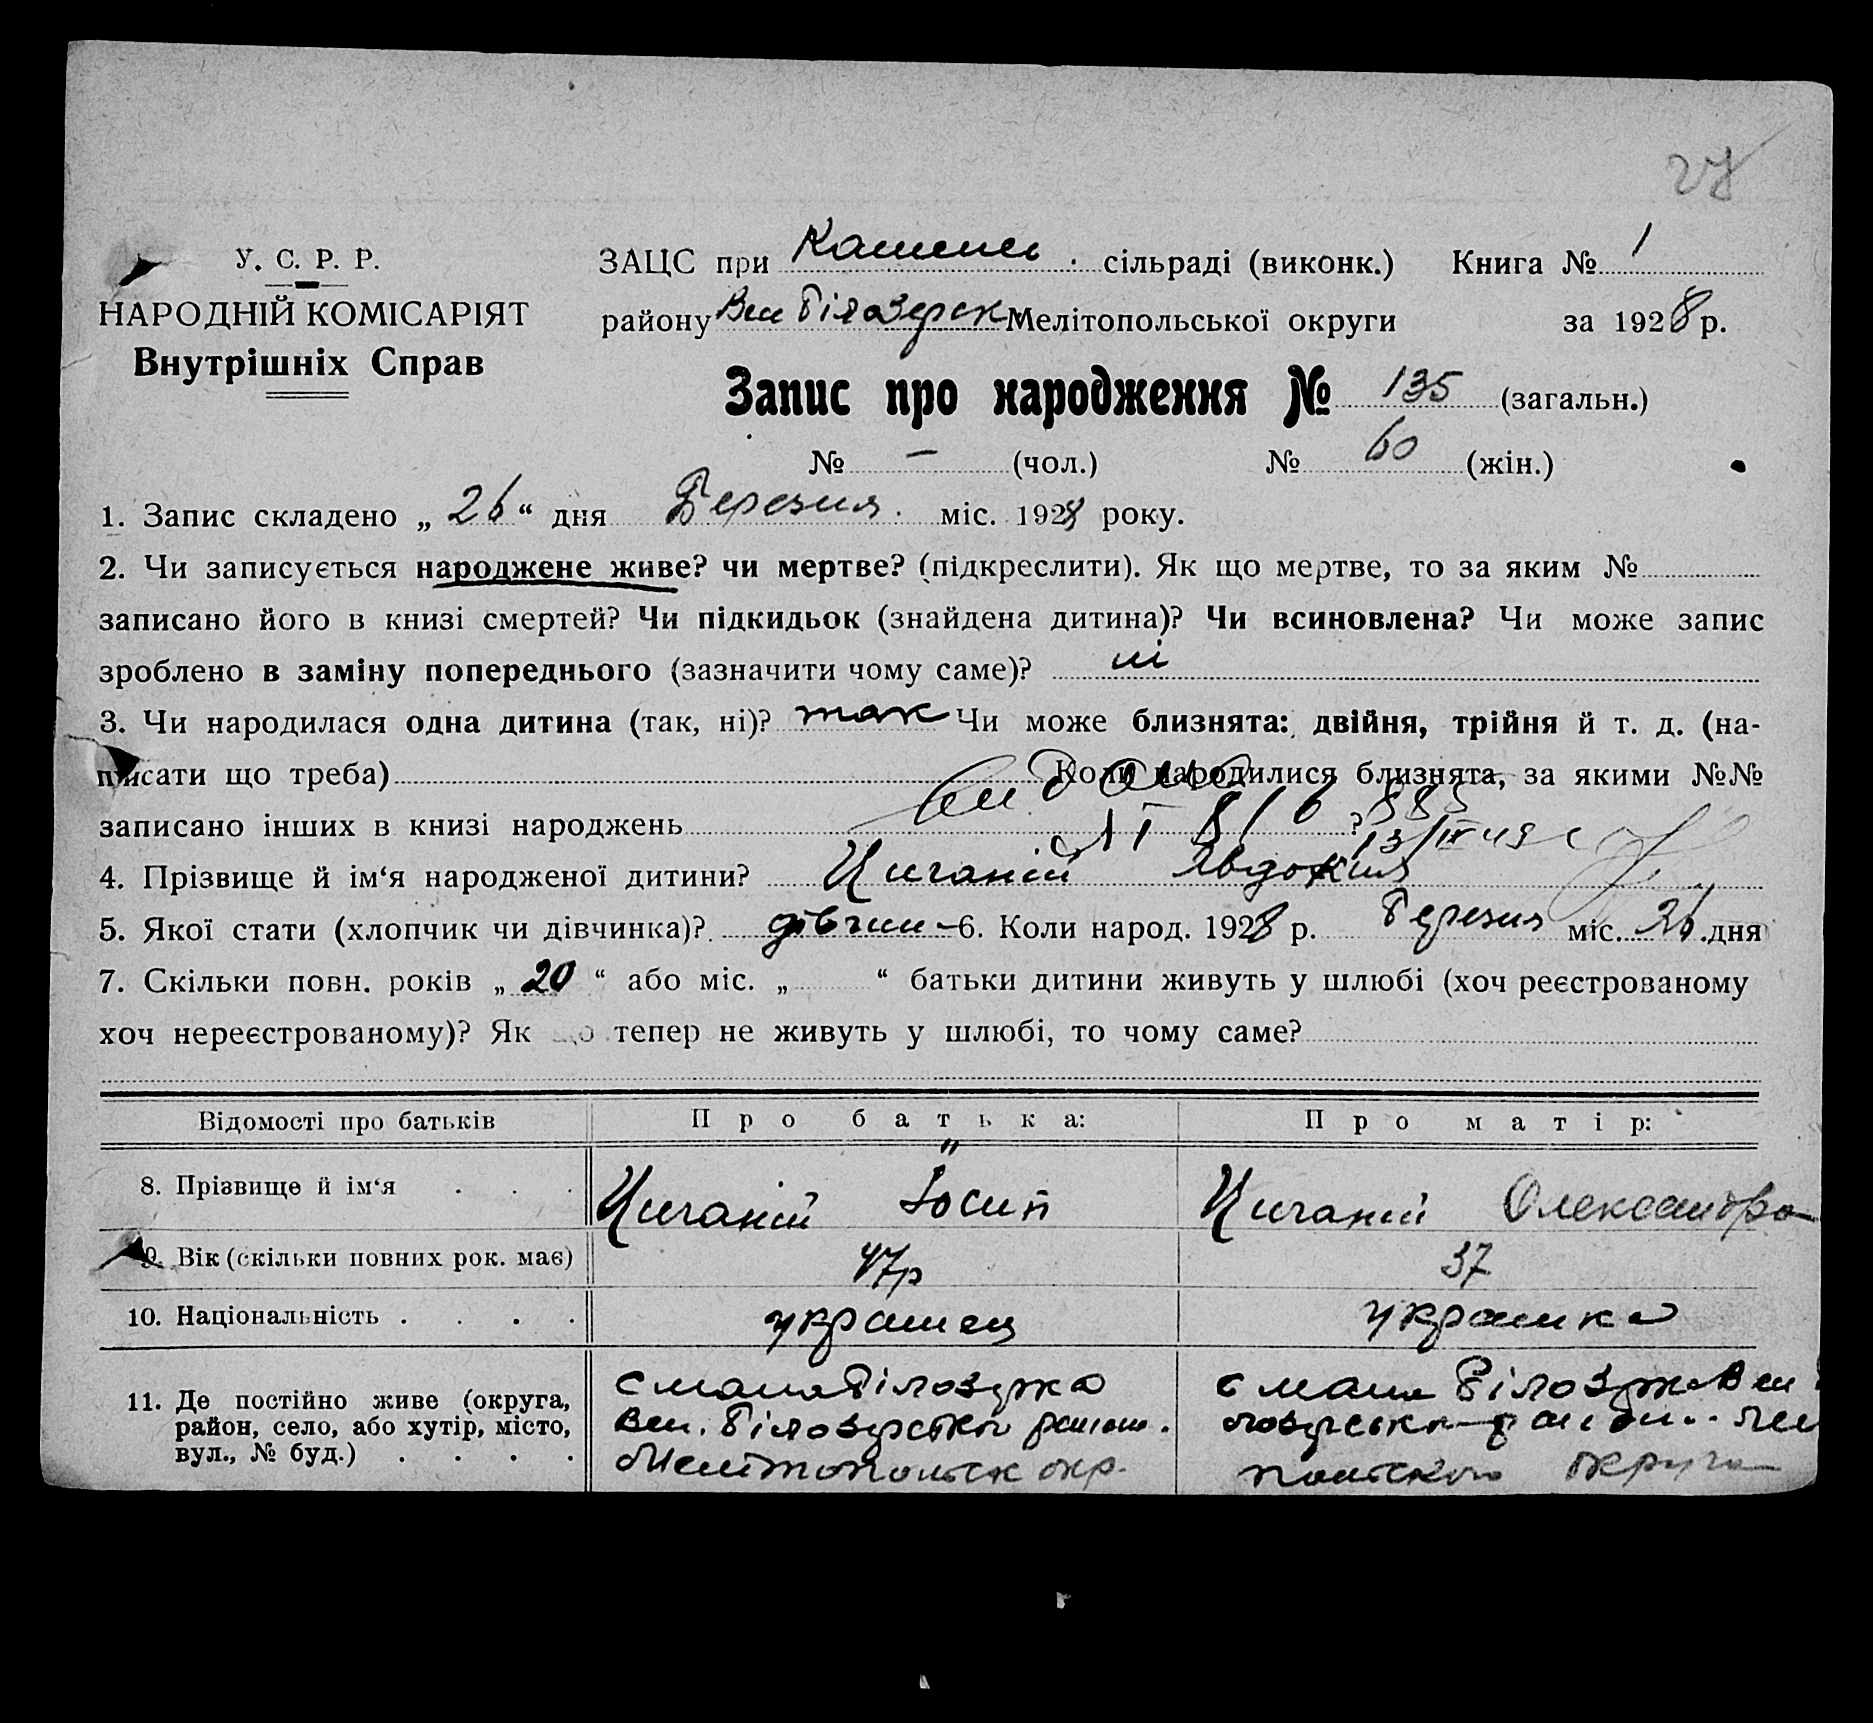 27
У. С. Р. Р.
НАРОДНІЙ КОМІСАРІЯТ
Внутрішніх Справ
ЗАЦС при сільраді (виконк.) Книга № 1
району Вел Білозерск. Мелітопольської округи за 1928 р.
Запис про народження № 135 (загальн.)
№ – (чол.) № 60 (жін.)
1. Запис складено „ 26 “ дня Березня. міс. 1928 року.
2. Чи записується народжене живе? чи мертве? (підкреслити). Як що мертве, то за яким №
записано його в книзі смертей? Чи підкидьок (знайдена дитина)? Чи всиновлена? Чи може запис
зроблено в заміну попереднього (зазначити чому саме)? ні
3. Чи народилася одна дитина (так, ні)? так Чи може близнята: двійня, трійня й т. д. (на-
писати що треба) Коли народилися близнята, за якими №№
записано інших в книзі народжень ?
4. Прізвище й ім‘я народженої дитини? Циганій Явдокия
5. Якої стати (хлопчик чи дівчинка)? дівчин – 6. Коли народ. 1928 р. Березня міс. 26 дня
7. Скільки повн. років „ 20 “ або міс. „ “ батьки дитини живуть у шлюбі (хоч реєстрованому
хоч нереєстрованому)? Як що тепер не живуть у шлюбі, то чому саме?
Відомості про батьків Про батька: Про матір:
8. Прізвище й ім‘я . . . Циганій Йосип Циганій Олександра
9. Вік (скільки повних рок. має) 47р 37
10. Національність . . . . украинец украинка
11. Де постійно живе (округа, с мала Білозірка с мала Білозірка Вел
район, село, або хутір, місто, Вел. Білозірской район.
вул., № буд.) . . . . Мелітопольск окр. польской округа